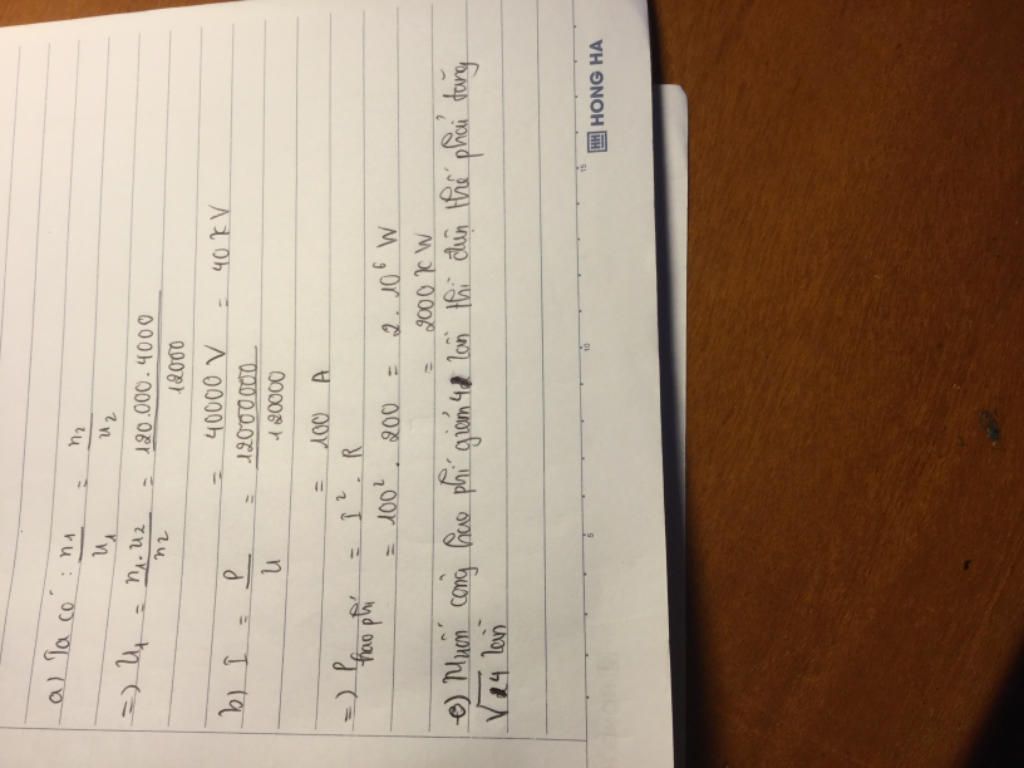 a) Ta có : n1/u1 = n2/u2
=) U1 = n1.u2/n2 = 120.000.4000/12000
= 40000 V = 40 KV
b) I = P/U = 12000000/120000
= 100 A
=) P hao phí = I². R
= 100². 200 = 2.10⁶ W
= 2000 KW
c) Muốn công hao phí giảm 4 lần thì điện thế phải tăng
√4 lần
HONG HA
5 10 15